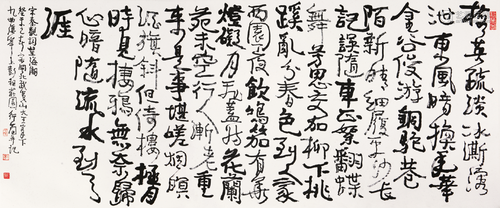 梅英疏淡冰澌溶
泄東風暗換年華
金谷俊游銅駝巷
陌新晴細履平沙長
記誤隨車正絮翻蝶
舞芳思交加柳下桃
蹊亂分春色到人家
西園夜飲鳴笳有華
燈礙月飛蓋妨花蘭
苑未空行人漸老重
來是事堪嗟烟暝
酒旗斜但倚樓極目
時見棲鴉無奈歸
心暗隨流水到天
涯
宋秦觀詞望海潮